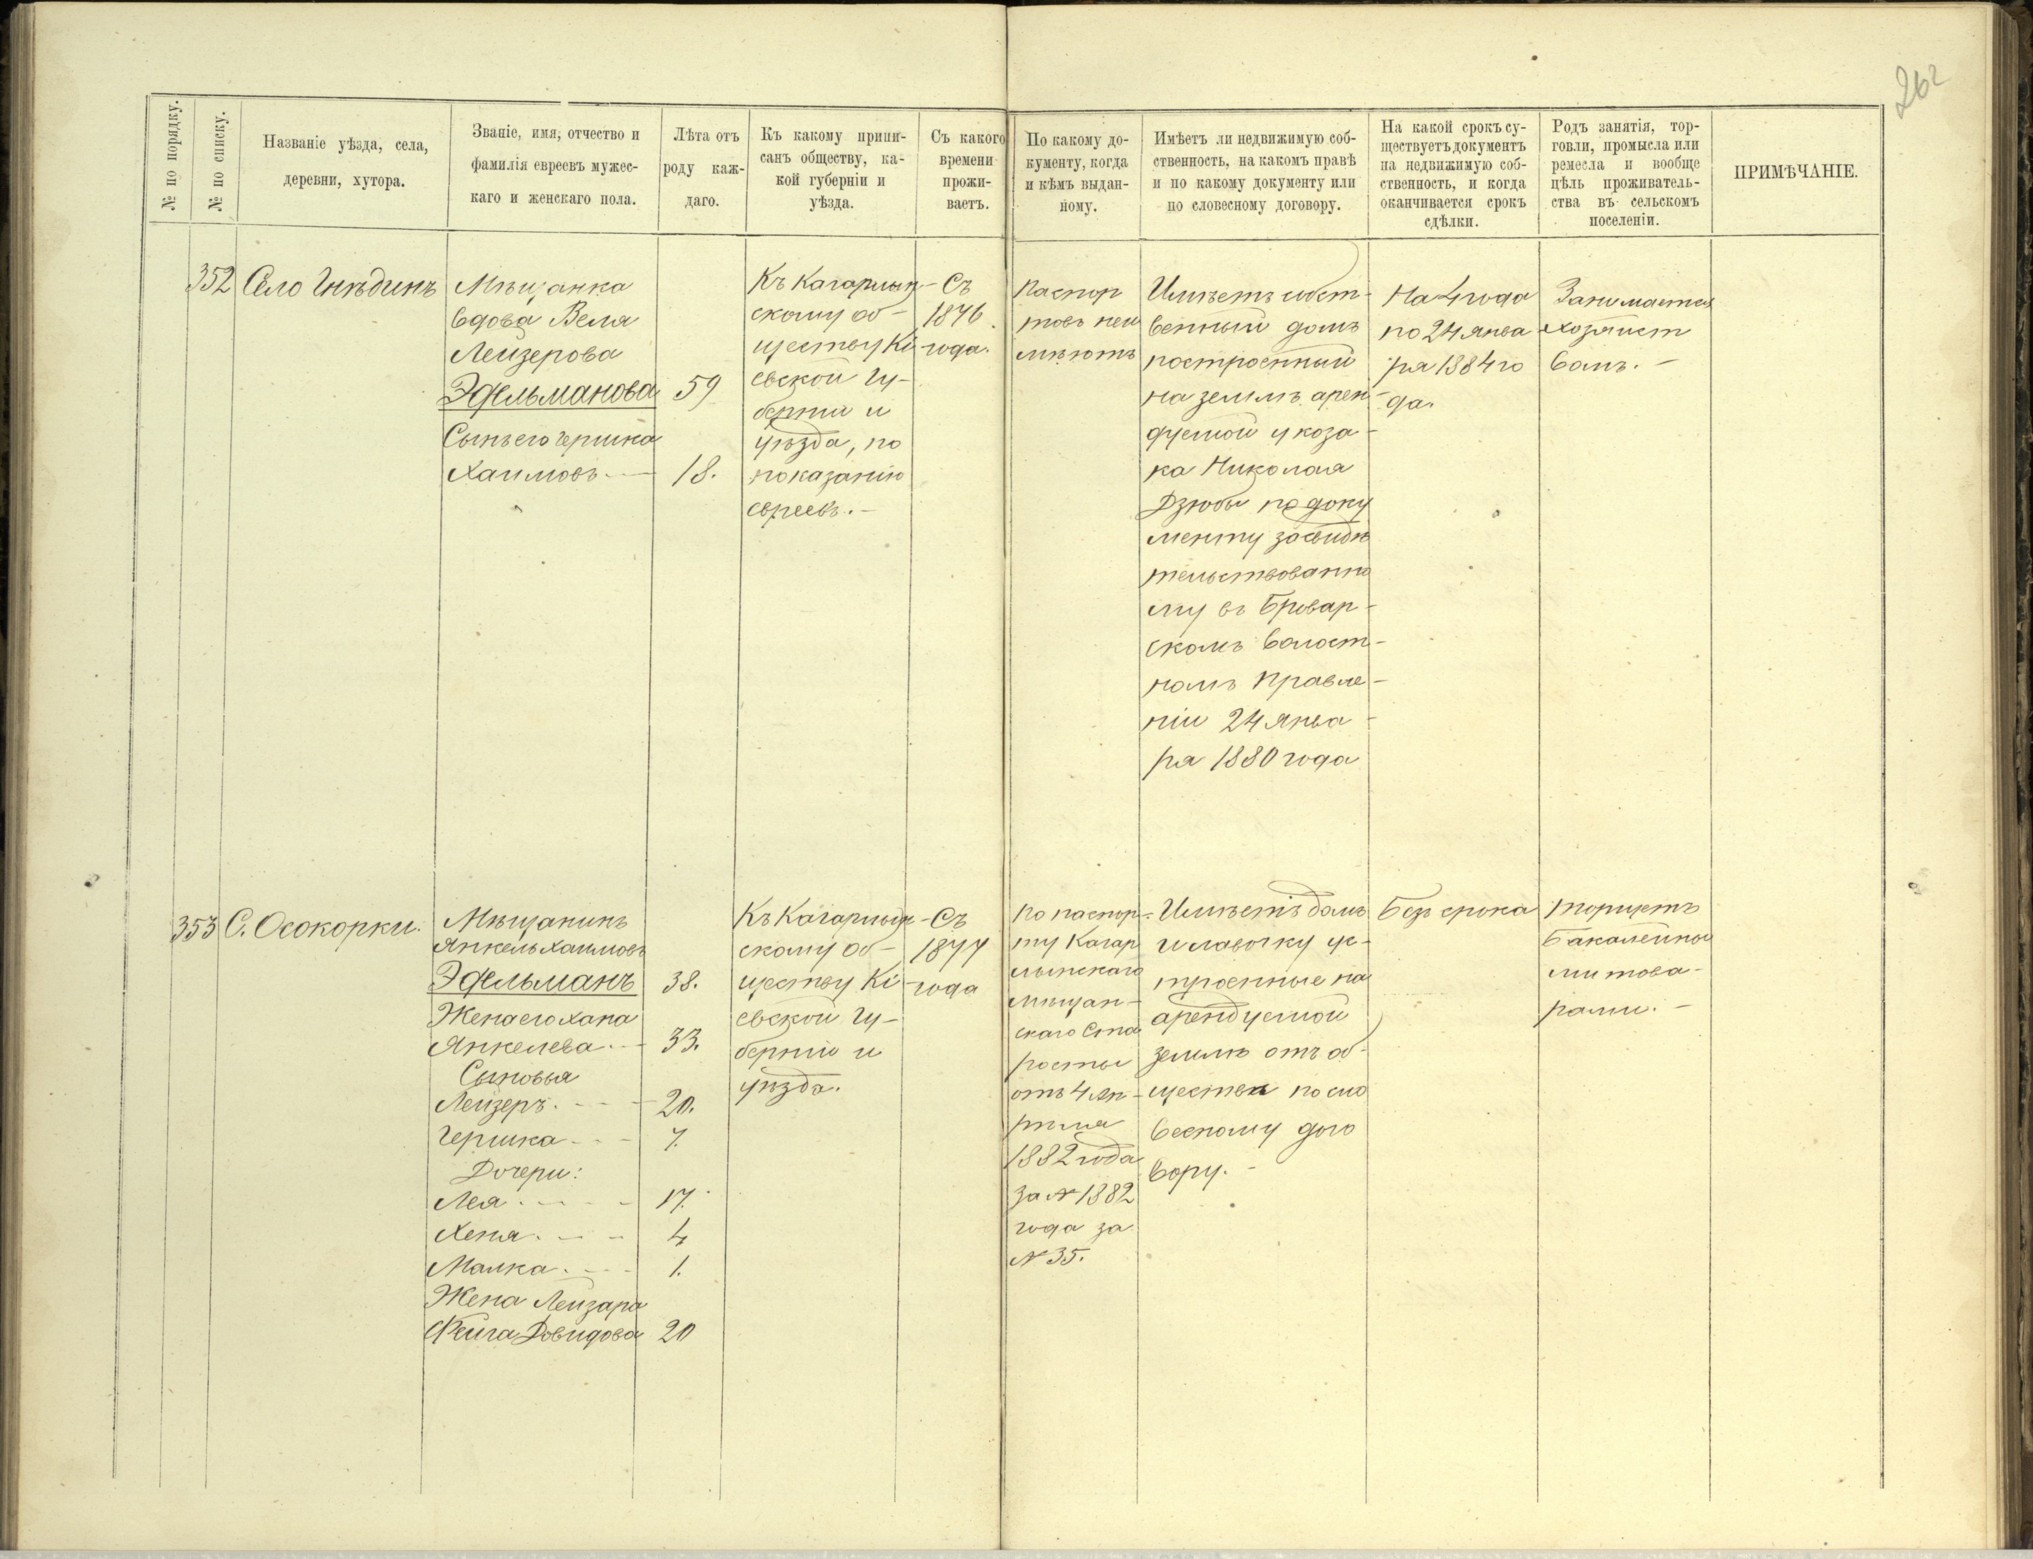 262
№ по порядку.
№ по списку.
Названіе уѣзда, села,
деревни, хутора.
Званіе, имя, отчество и
фамилія евреевъ мужес-
каго и женскаго пола.
Лѣта отъ
роду каж-
даго.
Къ какому припи-
санъ обществу, ка-
кой губерніи и
уѣзда.
Съ какого
времени
прожи-
ваетъ.
По какому до-
кументу, когда
и кѣмъ выдан-
ному.
Имѣетъ ли недвижимую соб-
ственность, на какомъ правѣ
и по какому документу или
по словесному договору.
На какой срокъ су-
ществуетъ документъ
на недвижимую соб-
ственность, и когда
оканчивается срокъ
сдѣлки.
Родъ занятія, тор-
говли, промысла или
ремесла и вообще
цѣль проживатель-
ства въ сельскомъ
поселеніи.
ПРИМѢЧАНІЕ.
352
Село Гнѣдинъ
Мѣщанка
вдова Веля
Лейзерова
Эдельманова 59
Сынъ его Гершка
Хаимовъ. — 18.
Къ Кагарлык-
скому об-
ществу Кі-
евской гу-
берніи и
уѣзда, по
показанію
евреевъ. —
Съ
1876
года.
Паспор
товъ неи
мѣютъ
Имѣетъ собст-
венный домъ
построенный
на землѣ арен-
дуемой у коза-
ка Николая
Дзюбы по доку
менту засвидѣ
тельствованно
му въ Бровар-
скомъ Волост-
номъ Правле-
ніи 24 Янва-
ря 1880 года
На 4 года
по 24 Янва
ря 1884 го
да.
Занимается
хозяйст
вомъ. —
353
С. Осокорки.
Мѣщанинъ
Янкель Хаимовъ
Эдельманъ 38.
Жена его Хана
Янкелева. — 33.
Сыновья
Лейзеръ. - - - 20.
Гершка - - - 7.
Дочери:
Лея. - - - 17.
Хеня. - - - 4
Малка. - - - 1.
Жена Лейзара
Фейга Довидова 20
Къ Кагарлык-
скому об-
ществу Кі-
евской гу-
берніи и
уѣзда.
Съ
1877
года
По паспор-
ту Кагар
лыкскаго
мѣщан-
скаго Ста
росты
отъ 4 Ап-
рѣля
1882 года
за № 1882
года за
№ 35.
Имѣетъ домъ
и лавочку ус-
троенные на
арендуемой
землѣ отъ об-
щества по сло
весному дого
вору. -
Безъ срока
Торгуетъ
Бакалейны
ми това-
рами. —